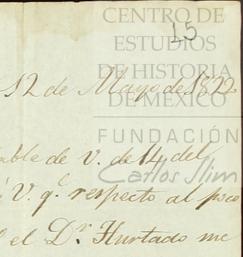 CENTRO DE
15
ESTUDIOS
DE HISTORIA
12 de Mayo de 1822
DE MÉXICO
FUNDACIÓN
able de v. de 14 del
Carlos Slim
V. q.e respecto al poco
el D.r Hurtado me